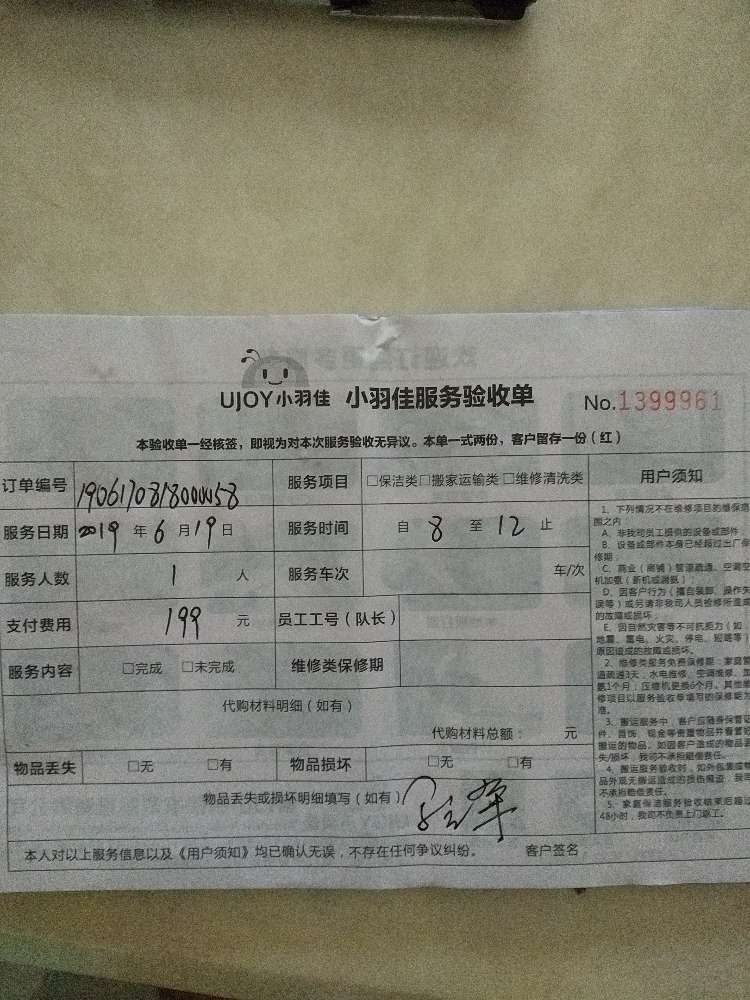 UJOY小羽佳 小羽佳服务验收单 No.1399961
本验收单一经核签，即视为对本次服务验收无异议。本单一式两份，客户留存一份（红）
订单编号 服务项目 □保洁类□搬家运输类□维修清洗类 用户须知
服务日期 2019 年 6 月 19 日 服务时间 自 8 至 12 止
服务人数 1 人 服务车次 车/次
支付费用 199 元 员工工号（队长）
服务内容 □完成 □未完成 维修类保修期
代购材料明细（如有）
代购材料总额： 元
物品丢失 □无 □有 物品损坏 □无 □有
物品丢失或损坏明细填写（如有）
本人对以上服务信息以及《用户须知》均已确认无误，不存在任何争议纠纷。 客户签名
1、下列情况不在维修项目的维保范
围之内
A、非我司员工提供的设备或部件
B、设备或部件本身已经超过出厂保
修期；
C、商业（商铺）管道疏通、空调空
机加氨（新机或漏氨）
D、因客户行为（擅自装卸、操作失
误等）或另请非我司人员检修所造成
的故障或损坏；
E、因自然灾害等不可抗拒力（如
地震、雷电、火灾、停电、短路等）
原因造成的故障或损坏。
2、维修类服务免费保修期：家庭管
道疏通3天，水电维修、空调维修、加
氨1个月；压缩机更换6个月。其他维
修项目以服务验收单填写的保修期为
准。
3、搬运服务中，客户应随身保管证
件、首饰、现金等贵重物品并看管好
搬运的物品，如因客户造成的物品丢
失/损坏，我司不承担赔偿责任。
4、搬运服务验收时，如外包装或物
品外观无搬运造成的损伤痕迹，我司
不承担赔偿责任。
5、家庭保洁服务验收结束后超过
48小时，我司不负责上门返工。